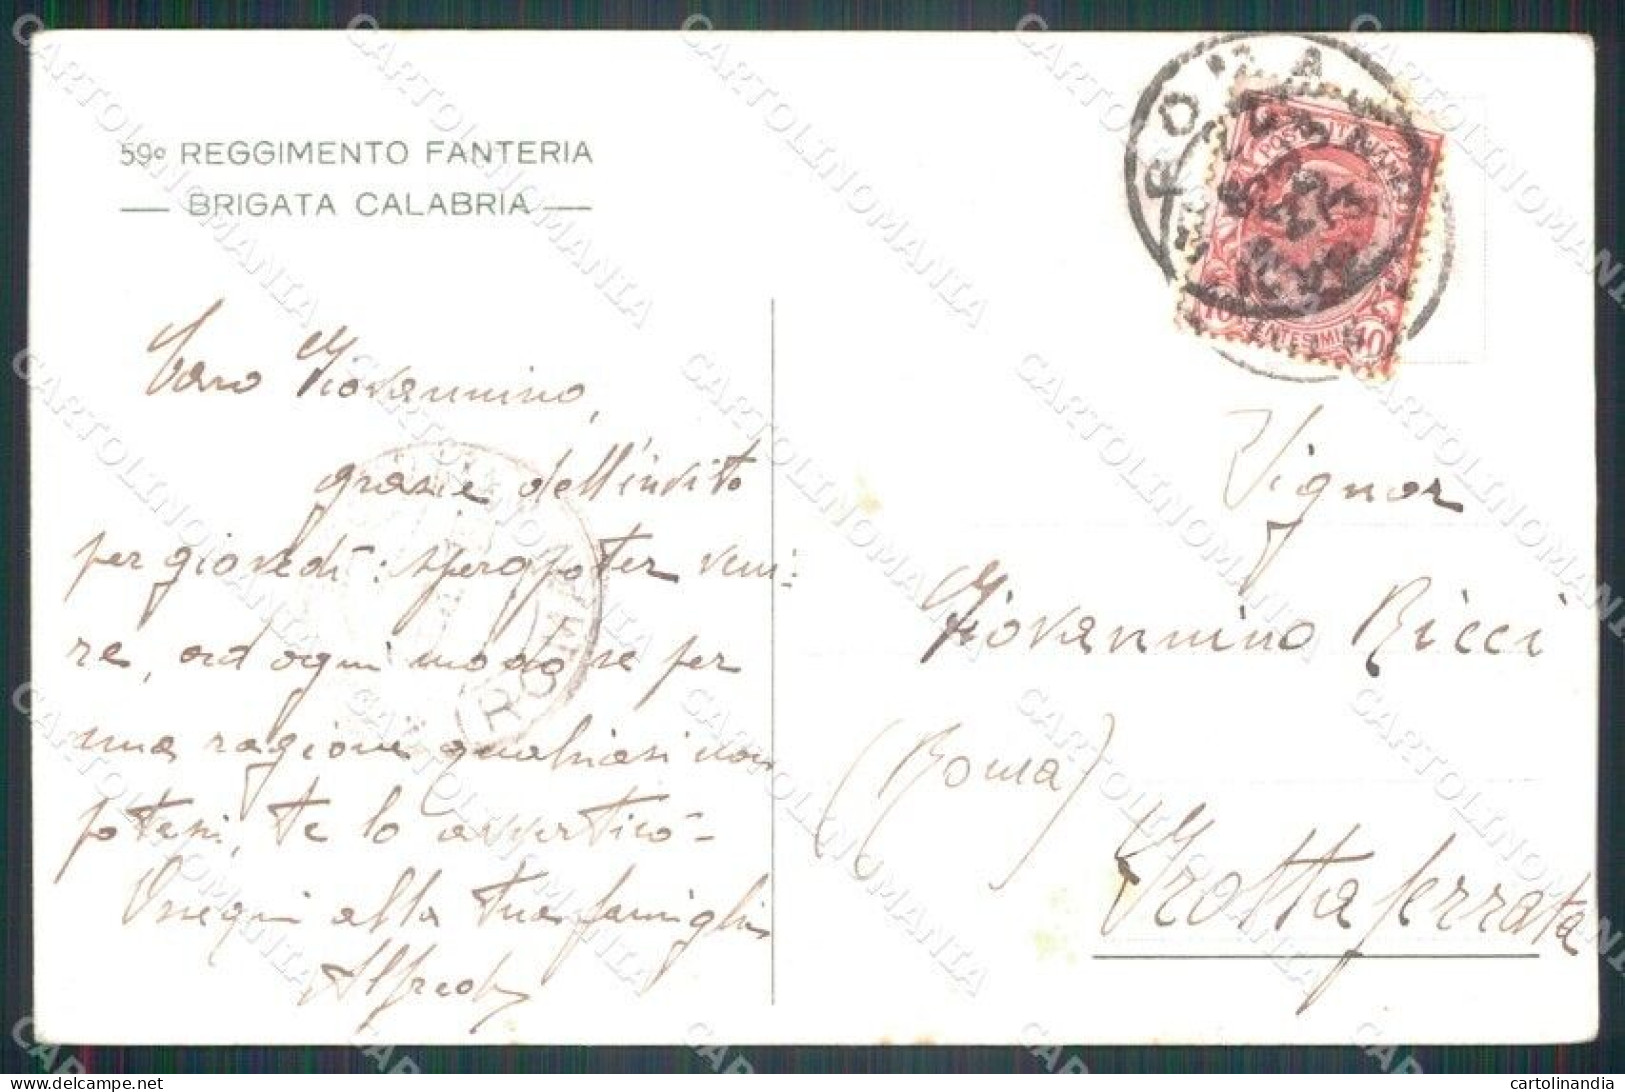 59º REGGIMENTO FANTERIA
BRIGATA CALABRIA
Caro Giovannino,
grazie dell'invito
per giovedì: spero poter veni-
re, ad ogni modo se per
una ragione qualsiasi non
potessi, te lo avvertirò -
Ossequi alla tua famiglia
Alfredo
ROMA
POSTE ITALIANE
10 CENTESIMI 10
Signor
Giovannino Ricci
(Roma)
Grottaferrata
ROMA
CARTOLINOMANIA
cartolinandia